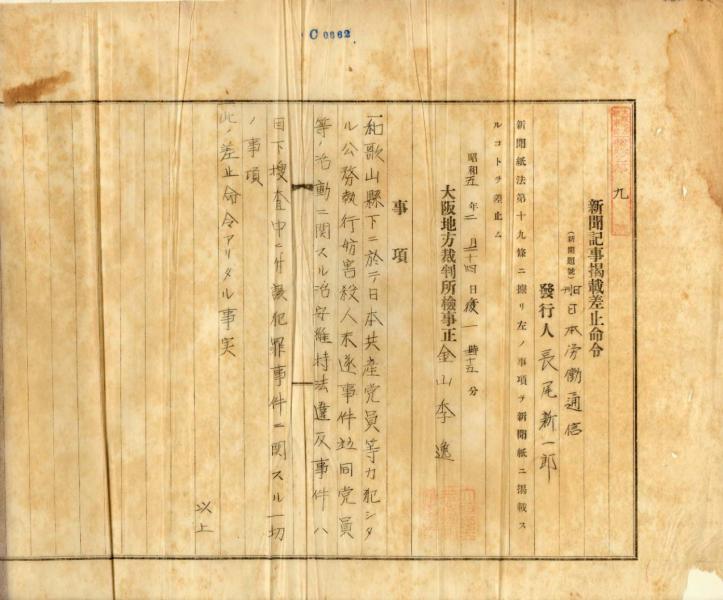 C 0662
九
新聞記事掲載差止命令
(新聞題號) 日刊日本労働通信
發行人 長尾新一郎
新聞紙法第十九條ニ據リ左ノ事項ヲ新聞紙ニ掲載ス
ルコトヲ差止ム
昭和五年二月二十四日後一時十五分
大阪地方裁判所検事正 金山季逸
事項
一、和歌山縣下ニ於テ日本共産党員等カ犯シタ
ル公務執行妨害殺人未遂事件竝同党員
等ノ活動ニ関スル治安維持法違反事件ハ
目下捜査中ニ付該犯罪事件ニ関スル一切
ノ事項
此ノ差止命令アリタル事実
以上